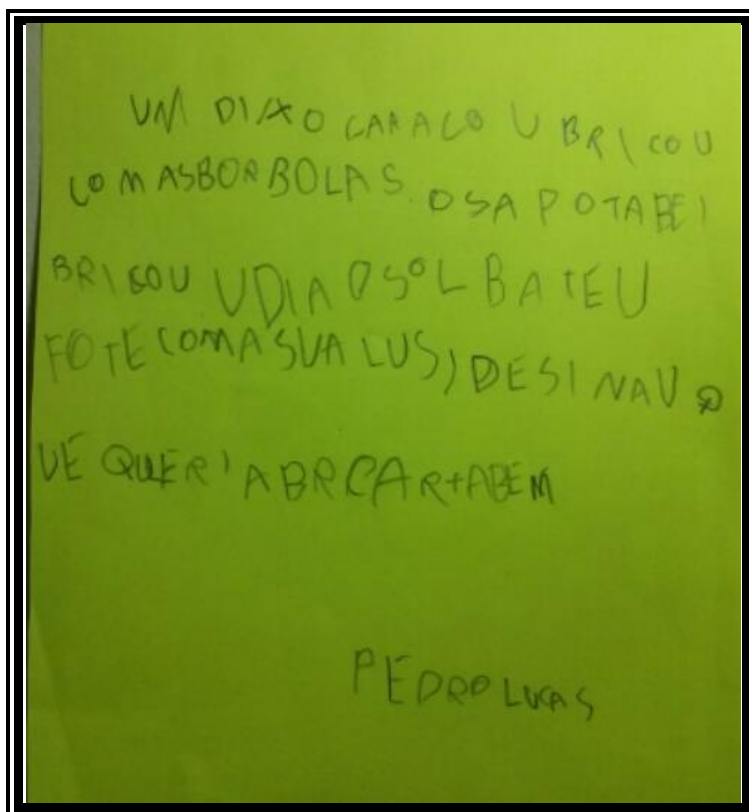 UM DIA O CARACO U BRICOU
COM ASBORBOLAS. OSAPOTABEI
BRICOU UDIA O SOL BATEU
FOTE COMA SUA LUS, DESINAU Q
UE QUERI ABRCAR TABEM
PEDRO LUCAS